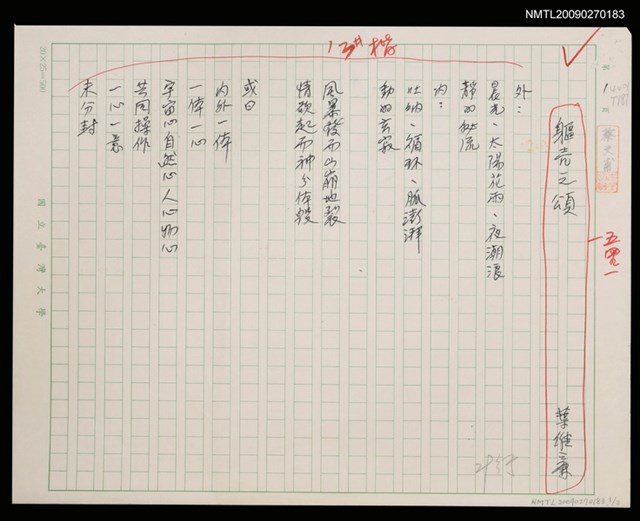 NMTL20090270183
軀壳之頌
葉維廉
外：
晨光、太陽花雨、夜潮浪
靜的秘流
內：
吐納、循环、脈澎湃
動的玄寂
風暴發而山崩地裂
情欲起而神分体毀
或曰
內外一体
一体一心
宇宙心自然心人心物心
共同操作
一心一意
未分封
五四一
20×25=500
國立臺灣大學
NMTL20090270183 1/2